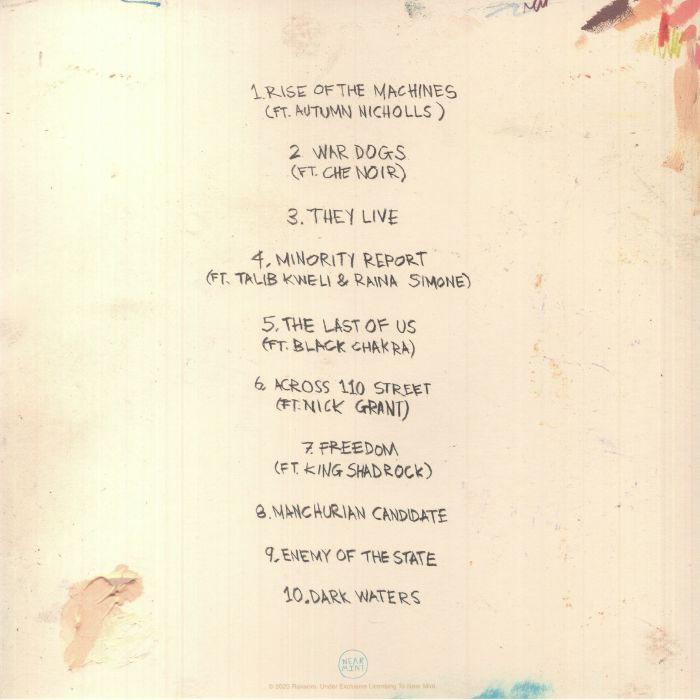 1. RISE OF THE MACHINES
(FT. AUTUMN NICHOLLS)
2 WAR DOGS
(FT. CHE NOIR)
3. THEY LIVE
4. MINORITY REPORT
(FT. TALIB KWELI & RAINA SIMONE)
5. THE LAST OF US
(FT. BLACK CHAKRA)
6. ACROSS 110 STREET
(FT. NICK GRANT)
7. FREEDOM
(FT. KING SHADROCK)
8. MANCHURIAN CANDIDATE
9. ENEMY OF THE STATE
10. DARK WATERS
NEAR
MINT
© 2023 Ransom. Under Exclusive Licensing To Near Mint.